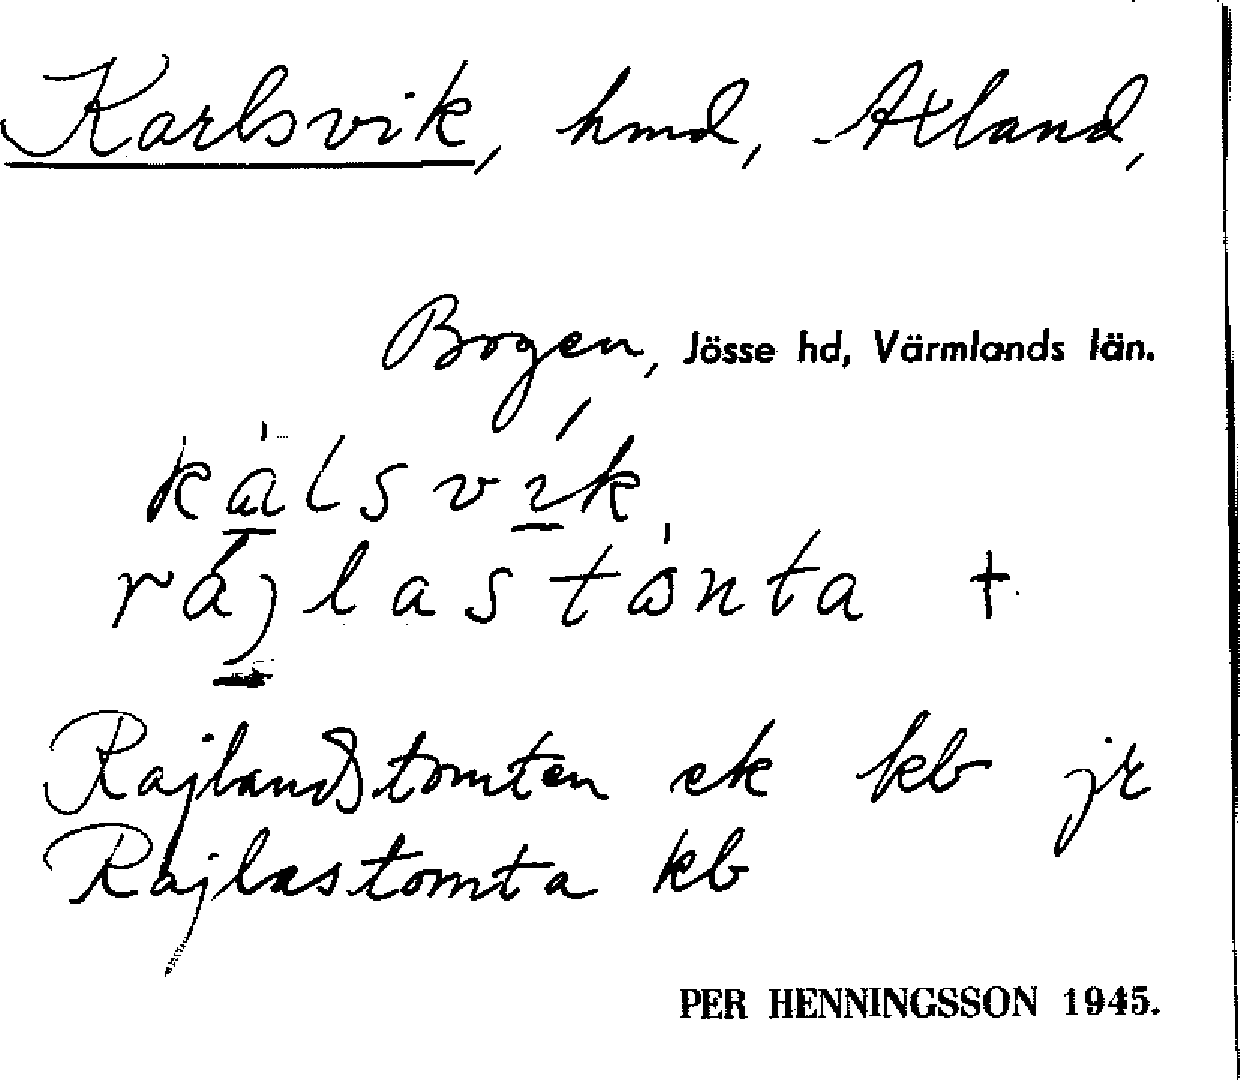 Karlsvik, hmd, Axland,
Bogen, Jösse hd, Värmlands län.
kálsvík
rájlastånta †
Rajlandstomten ek kb jr
Rajlastomta kb
PER HENNINGSSON 1945.